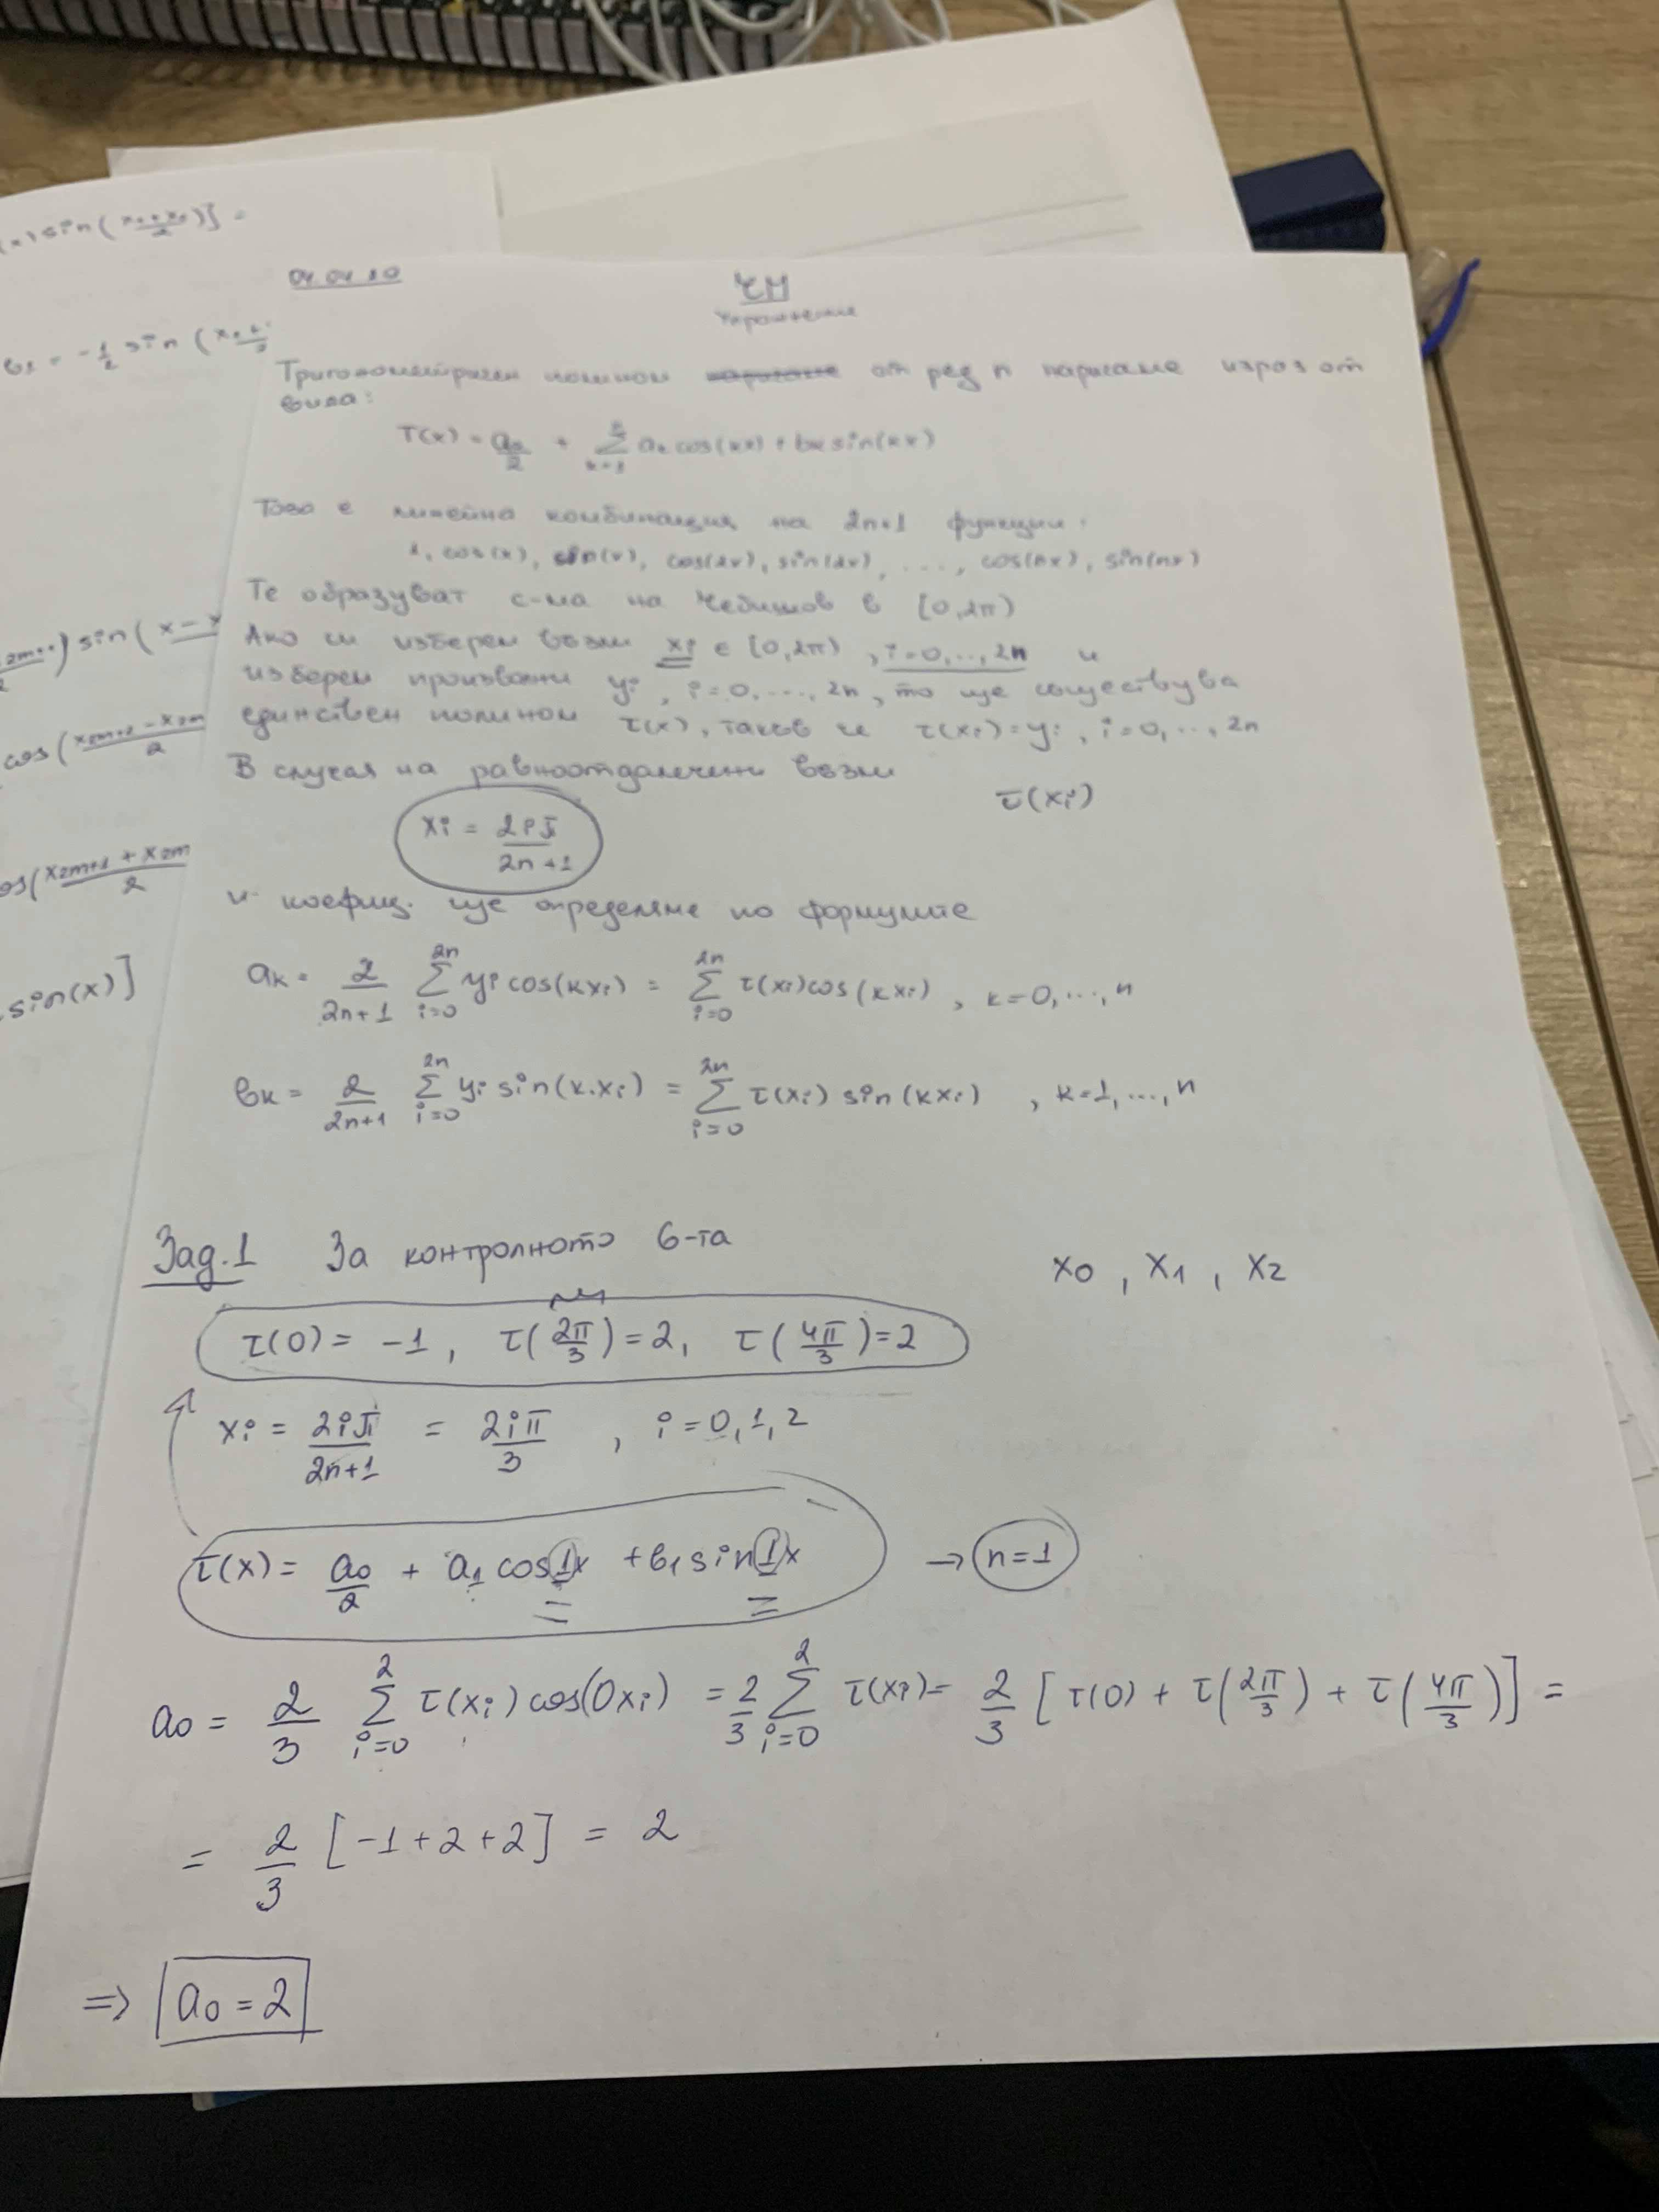 04.04.20
ЧМ
Упражнение
Тригонометричен полином от ред n наричаме израз от
вида:
T(x) = a0/2 + Σ_{k=1}^{n} ak cos(kx) + bk sin(kx)
Това е линейна комбинация на 2n+1 функции:
1, cos(x), sin(x), cos(2x), sin(2x), ..., cos(nx), sin(nx)
Те образуват с-ма на Чебишов в [0,2π)
Ако си изберем възли xi ∈ [0,2π), i=0,..,2n и
изберем произволни yi, i=0,...,2n, то ще съществува
единствен полином τ(x), такъв че τ(xi)=yi, i=0,..,2n
В случая на равноотдалечени възли
τ(xi)
xi = 2iπ/(2n+1)
и коефиц. ще определяме по формулите
ak = 2/(2n+1) Σ_{i=0}^{2n} yi cos(kxi) = Σ_{i=0}^{2n} τ(xi)cos(kxi), k=0,...,n
bk = 2/(2n+1) Σ_{i=0}^{2n} yi sin(k.xi) = Σ_{i=0}^{2n} τ(xi) sin(kxi), k=1,...,n
Зад.1 За контролното 6-та
x0, x1, x2
τ(0) = -1, τ(2π/3)=2, τ(4π/3)=2
xi = 2iπ/(2n+1) = 2iπ/3, i=0,1,2
τ(x) = a0/2 + a1 cos1x + b1 sin1x → n=1
a0 = 2/3 Σ_{i=0}^{2} τ(xi) cos(0xi) = 2/3 Σ_{i=0}^{2} τ(xi) = 2/3 [τ(0) + τ(2π/3) + τ(4π/3)] =
= 2/3 [-1+2+2] = 2
⇒ a0 = 2
sin(x)]